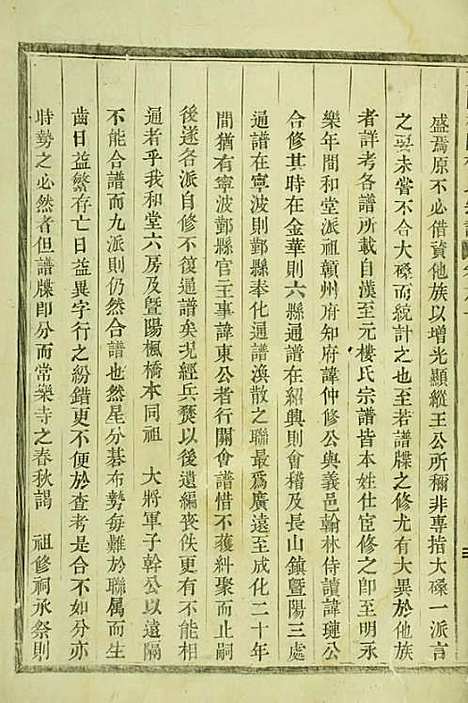 盛焉原不必借資他族以增光顯縱王公所稱非專指大磉一派言
之要未嘗不合大磉而統計之也至若譜牒之修尤有大異於他族
者詳考各譜所載自漢至元樓氏宗譜皆本姓仕宦修之卽至明永
樂年間和堂派祖贛州府知府諱仲修公與義邑翰林侍讀諱璉公
合修其時在金華則六縣通譜在紹興則會稽及長山鎭曁陽三處
通譜在寧波則鄞縣奉化通譜渙散之聯最爲廣遠至成化二十年
間猶有寧波鄞縣官主事諱東公者行關會譜惜不獲糾聚而止嗣
後遂各派自修不復通譜矣況經兵燹以後遺編喪佚更有不能相
通者乎我和堂六房及曁陽楓橋本同祖 大將軍子幹公以遠隔
不能合譜而九派則仍然合譜也然星分碁布勢每難於聯属而生
齒日益繁存亡日益異字行之紛錯更不便於查考是合不如分亦
時勢之必然者但譜牒卽分而常樂寺之春秋謁 祖修祠承祭則